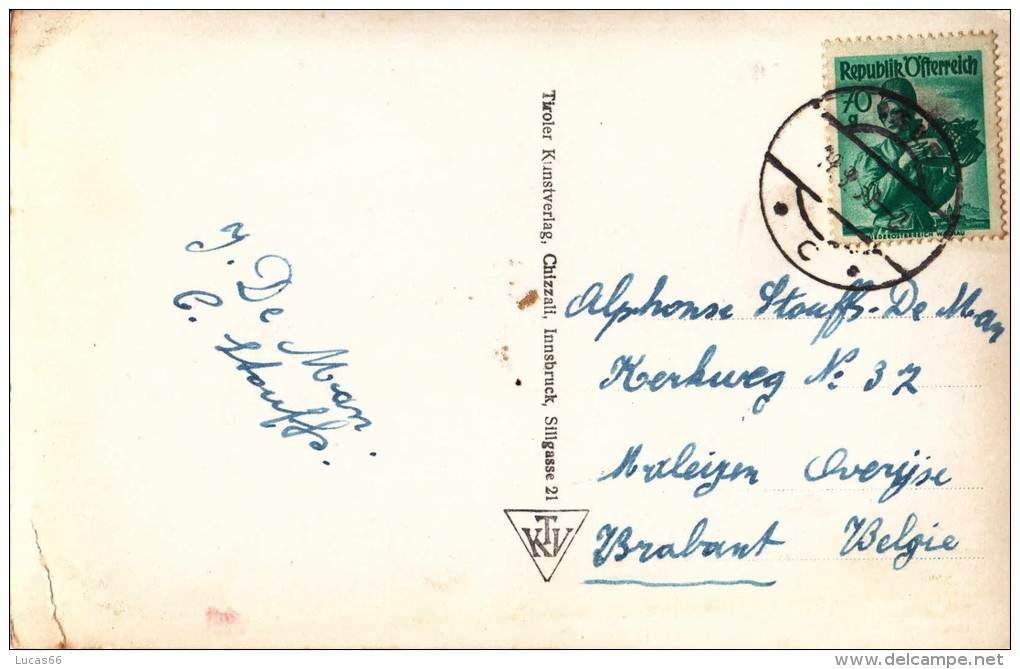 J. De Man.
C. Stouffs.
Tiroler Kunstverlag, Chizzali, Innsbruck, Sillgasse 21
KTV
Republik Österreich
70
g
NIEDERÖSTERREICH WACHAU
C
Alphonse Stouffs-De Man
Kerkweg No 37
Maleizen Overijse
Brabant België
Lucas66
www.delcampe.net